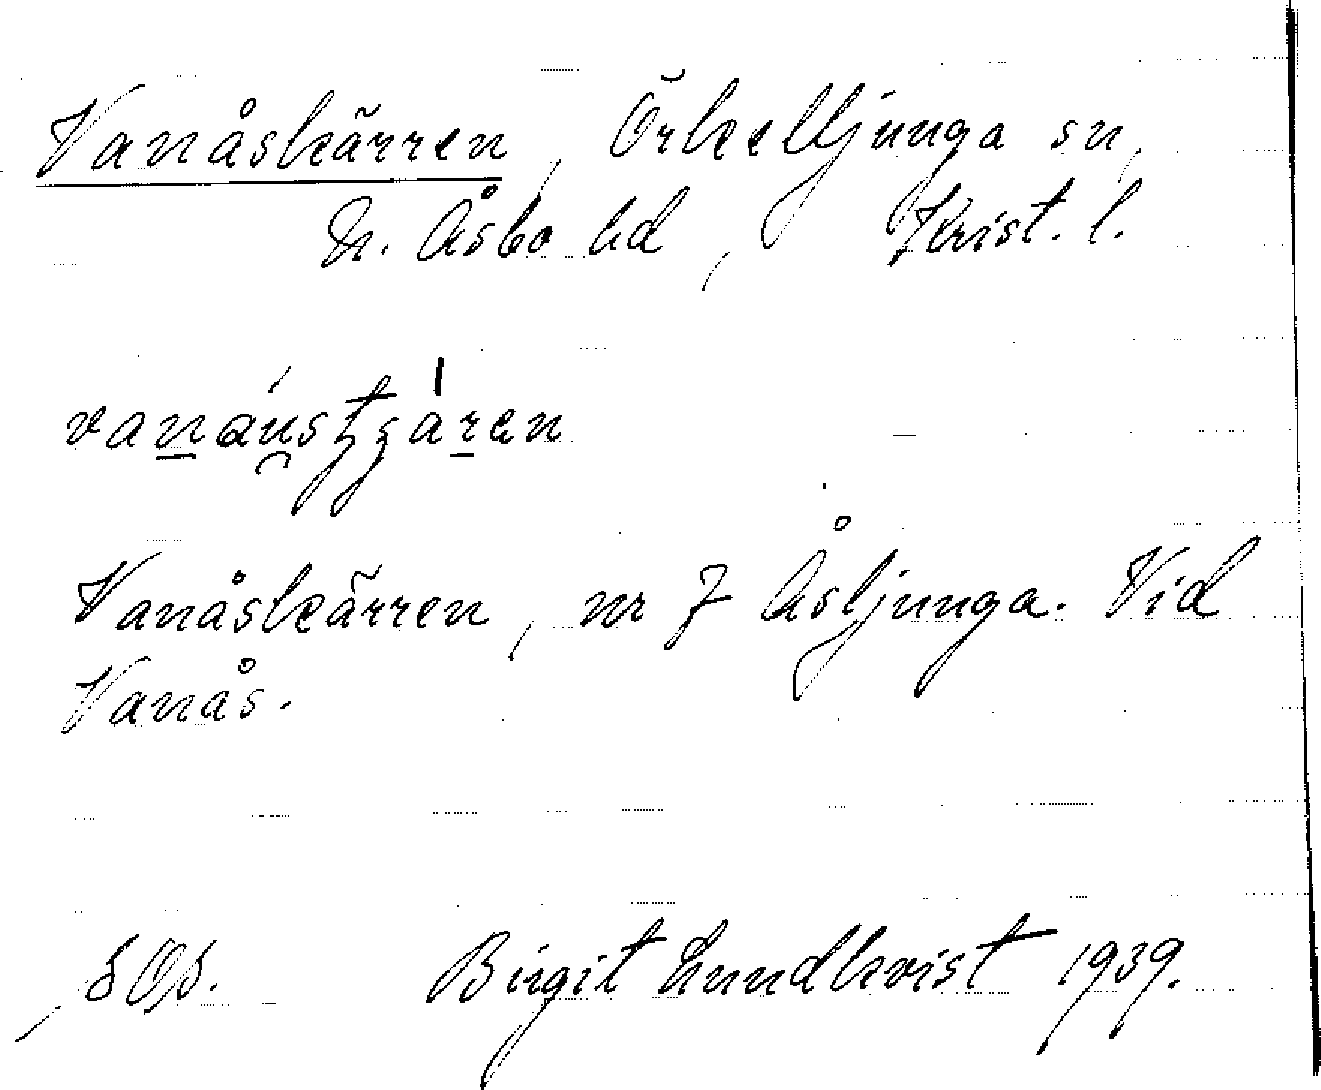 Vanåskärren, Örkelljunga sn,
N. Åsbo hd, Krist. l.
Vanåskärren, nr 7 Åsljunga. Vid
Vanås.
Birgit Lundkvist 1939.